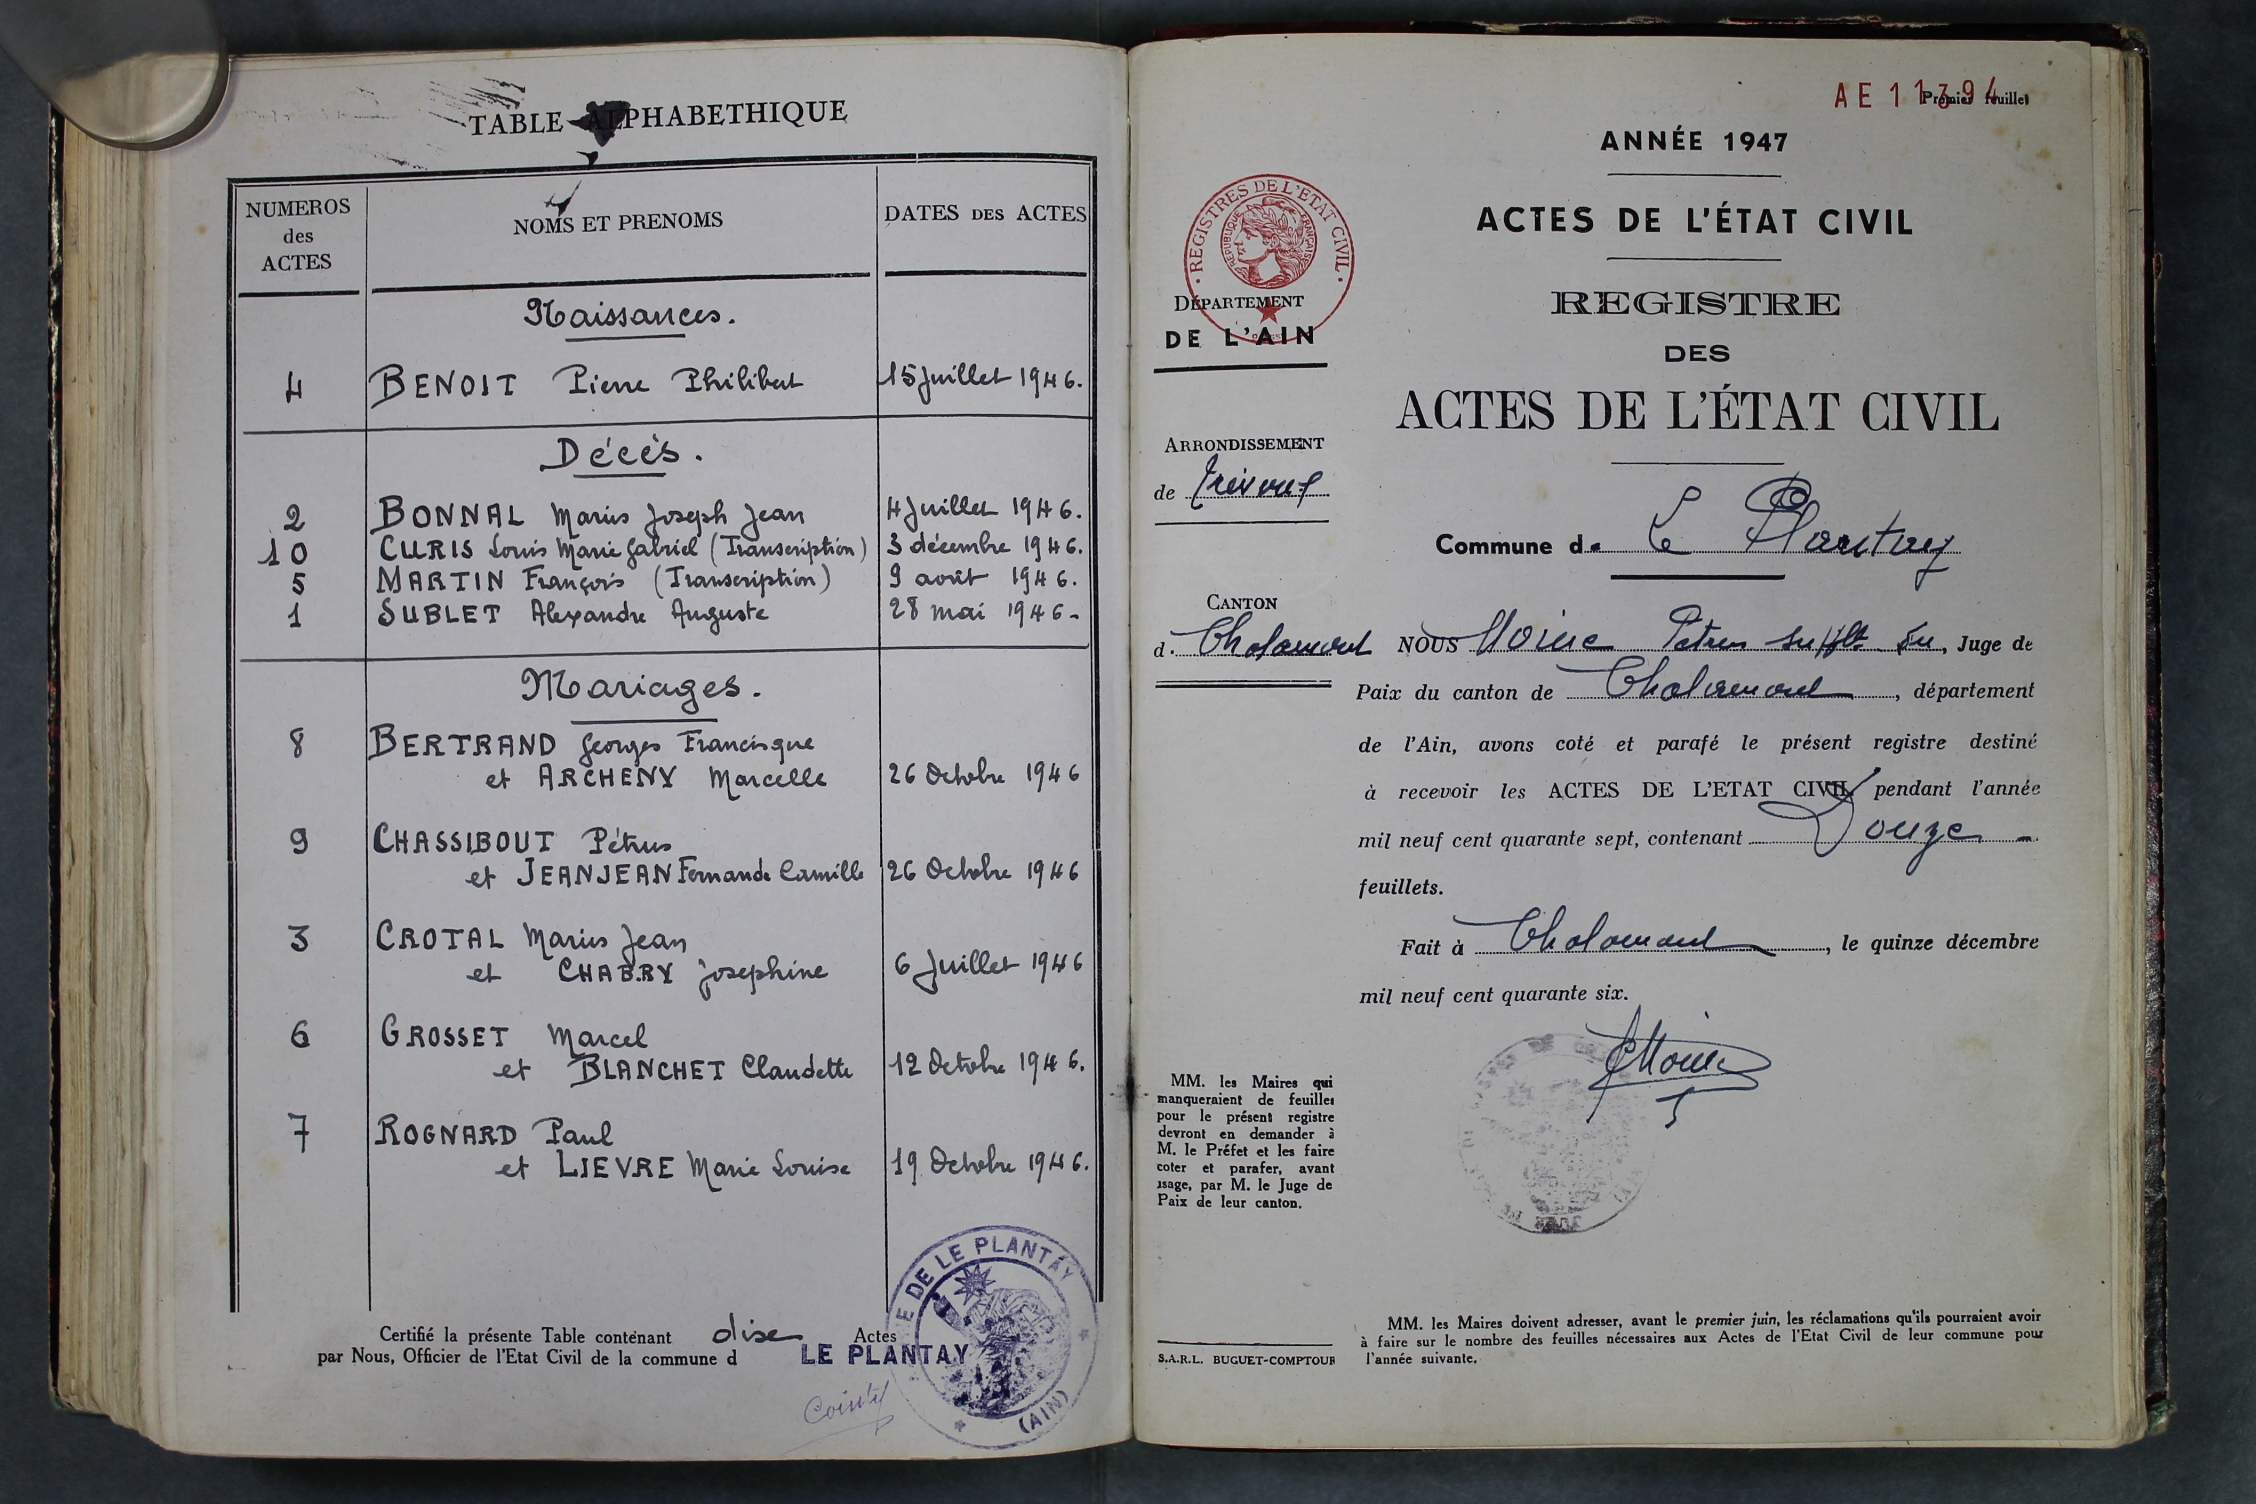 TABLE ALPHABETHIQUE
NUMEROS
des
ACTES
NOMS ET PRENOMS
DATES DES ACTES
Naissances.
4 BENOIT Pierre Philibert 15 Juillet 1946.
Décès.
2 BONNAL Marius Joseph Jean 4 Juillet 1946.
10 CURIS Louis Marie Gabriel (Transcription) 3 décembre 1946.
5 MARTIN François (Transcription) 9 août 1946.
1 SUBLET Alexandre Auguste 28 mai 1946-
Mariages.
8 BERTRAND Georges Francisque
et ARCHENY Marcelle 26 Octobre 1946
9 CHASSIBOUT Pétrus
et JEANJEAN Fernande Camille 26 Octobre 1946
3 CROTAL Marius Jean
et CHABRY Josephine 6 Juillet 1946
6 GROSSET Marcel
et BLANCHET Claudette 12 Octobre 1946.
7 ROGNARD Paul
et LIEVRE Marie Louise 19 Octobre 1946.
Certifié la présente Table contenant dix Actes
par Nous, Officier de l'Etat Civil de la commune d LE PLANTAY
DE LE PLANTAY
(AIN)
AE 11394
Premier feuillet
ANNÉE 1947
ACTES DE L'ÉTAT CIVIL
REGISTRE
DES
ACTES DE L'ÉTAT CIVIL
REGISTRES DE L'ETAT CIVIL
REPUBLIQUE FRANÇAISE
DÉPARTEMENT
DE L'AIN
ARRONDISSEMENT
de Trévoux
CANTON
d. Chalamont
Commune de Le Plantay
NOUS Moine Petrus suppl., Juge de
Paix du canton de Chalamont, département
de l'Ain, avons coté et parafé le présent registre destiné
à recevoir les ACTES DE L'ETAT CIVIL pendant l'année
mil neuf cent quarante sept, contenant Douze
feuillets.
Fait à Chalamont, le quinze décembre
mil neuf cent quarante six.
MM. les Maires qui
manqueraient de feuilles
pour le présent registre
devront en demander à
M. le Préfet et les faire
coter et parafer, avant
usage, par M. le Juge de
Paix de leur canton.
S.A.R.L. BUGUET-COMPTOUR
MM. les Maires doivent adresser, avant le premier juin, les réclamations qu'ils pourraient avoir
à faire sur le nombre des feuilles nécessaires aux Actes de l'Etat Civil de leur commune pour
l'année suivante.